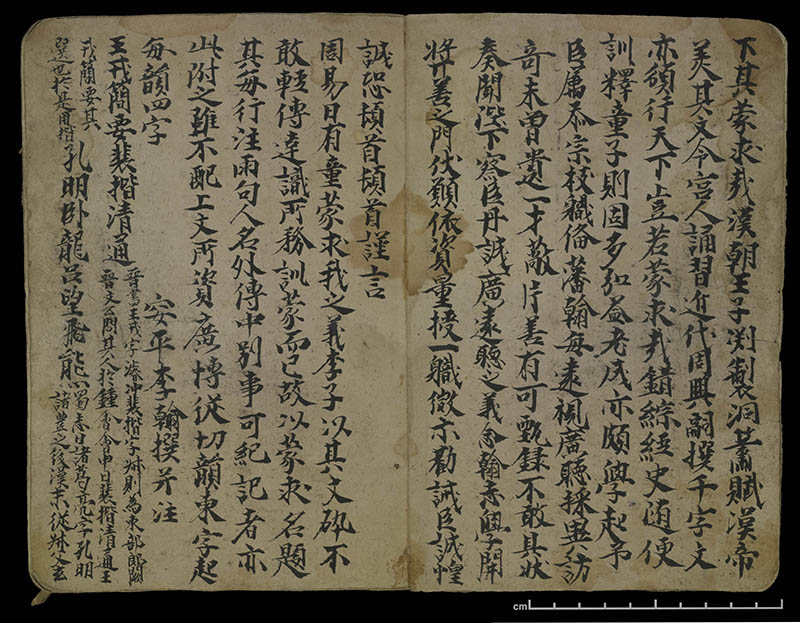 下其蒙求哉漢朝王子渕製洞簫賦漢帝
美其文令宮人誦習近代周興嗣撰千字文
亦頒行天下豈若蒙求哉錯綜經史随便
訓釋童子則固多弘益老成亦頗覽起予
臣属忝宗枝職俻藩翰每遠視廣聽採異訪
奇未曾遺一才蔽片善有可甄錄不敢具狀
奏聞陛下察臣丹誠廣遠聽之義令翰志學開
奬善之門伏願依資量授一職微示勸誡臣誠惶
誠恐頓首頓首謹言
周易曰有童蒙求我之義李子以其文碎不
敢輕傳達識所務訓蒙而已故以蒙求名題
其每行注兩句人名外傳中別事可紀記者亦
此附之雖不配上文所資廣博從切韻東字起
每韻四字
安平李翰撰并注
王戎簡要裴揩清通 晉書王戎字濬沖裴揩字叔則為吏部郎闕 晉文公問其人於鍾會會曰裴揩清通王
戎簡要其 選也於是用揩 孔明卧龍呂望飛熊 蜀志曰諸葛亮字孔明 諸豊之後漢末從叔父玄
cm